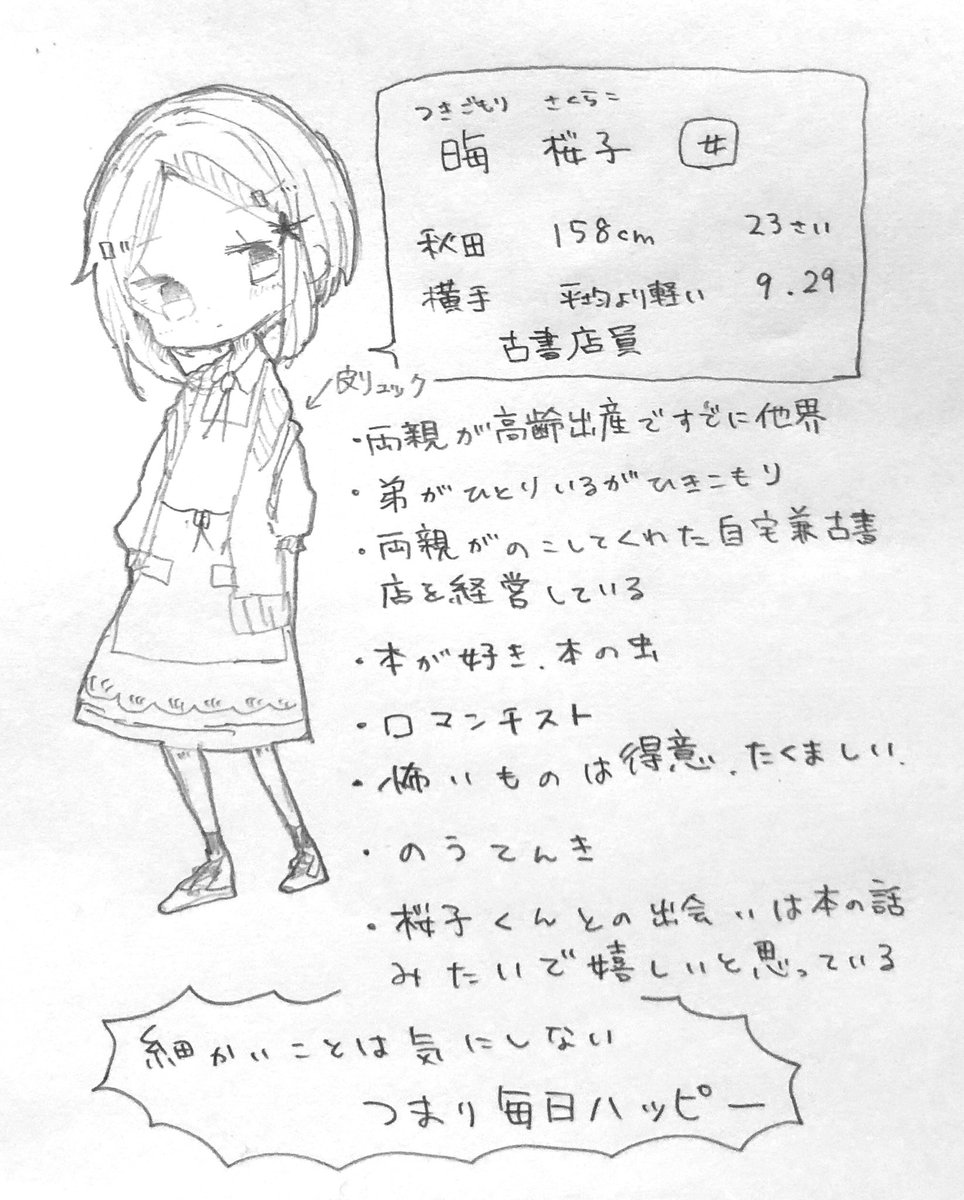 つきごもり さくらこ
晦 桜子 女
秋田 158cm 23さい
横手 平均より軽い 9.29
古書店員
皮リュック
・両親が高齢出産ですでに他界
・弟がひとりいるがひきこもり
・両親がのこしてくれた自宅兼古書
店を経営している
・本が好き、本の虫
・ロマンチスト
・怖いものは得意、たくましい、
・のうてんき
・桜子くんとの出会いは本の話
みたいで嬉しいと思っている
細かいことは気にしない
つまり毎日ハッピー